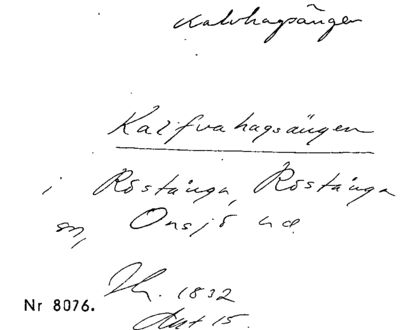 Kalvhagsängen
Kalfvahagsängen
i Röstånga, Röstånga
sn, Onsjö hd.
Th. 1832
Akt 15.
Nr 8076.